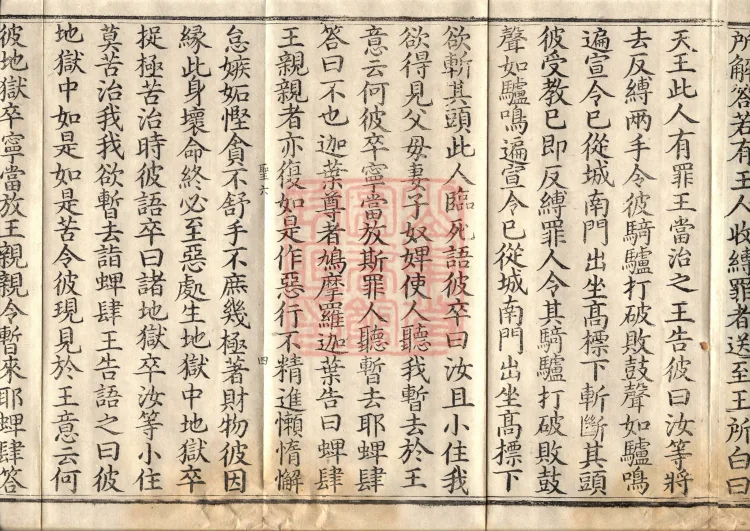 所解答若有王人收縛罪者送至王所白曰
天王此人有罪王當治之王告彼曰汝等將
去反縛兩手令彼騎驢打破敗鼓聲如驢鳴
遍宣令已從城南門出坐高標下斬斷其頭
彼受教已即反縛罪人令其騎驢打破敗鼓
聲如驢鳴遍宣令已從城南門出坐高標下
欲斬其頭此人臨死語彼卒曰汝且小住我
欲得見父母妻子奴婢使人聽我暫去於王
意云何彼卒寧當放斯罪人聽暫去耶蜱肆
答曰不也迦葉尊者鳩摩羅迦葉告曰蜱肆
王親親者亦復如是作惡行不精進懶惰懈
聖六
四
怠嫉妬慳貪不舒手不庶幾極著財物彼因
緣此身壞命終必至惡處生地獄中地獄卒
捉極苦治時彼語卒曰諸地獄卒汝等小住
莫苦治我我欲暫去詣蜱肆王告語之曰彼
地獄中如是如是苦令彼現見於王意云何
彼地獄卒寧當放王親親令暫來耶蜱肆答